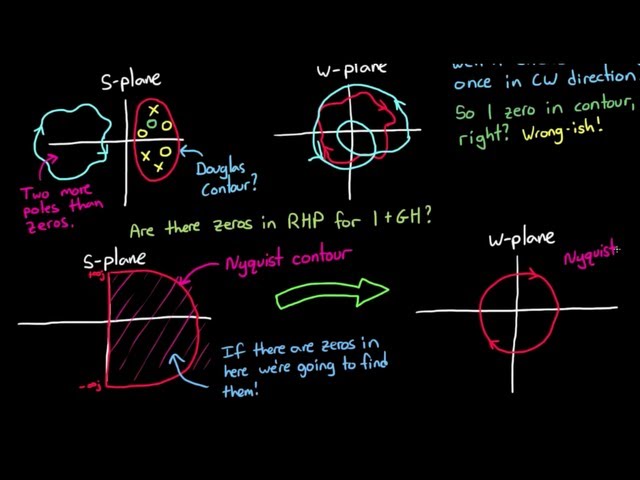 S-plane
W-plane
once in CW direction
So 1 zero in contour,
right? Wrong-ish!
Two more
poles than
zeros.
Douglas
Contour?
Are there zeros in RHP for 1+GH?
S-plane
+∞j
Nyquist contour
W-plane
Nyquist
If there are zeros in
here we're going to find
them!
-∞j